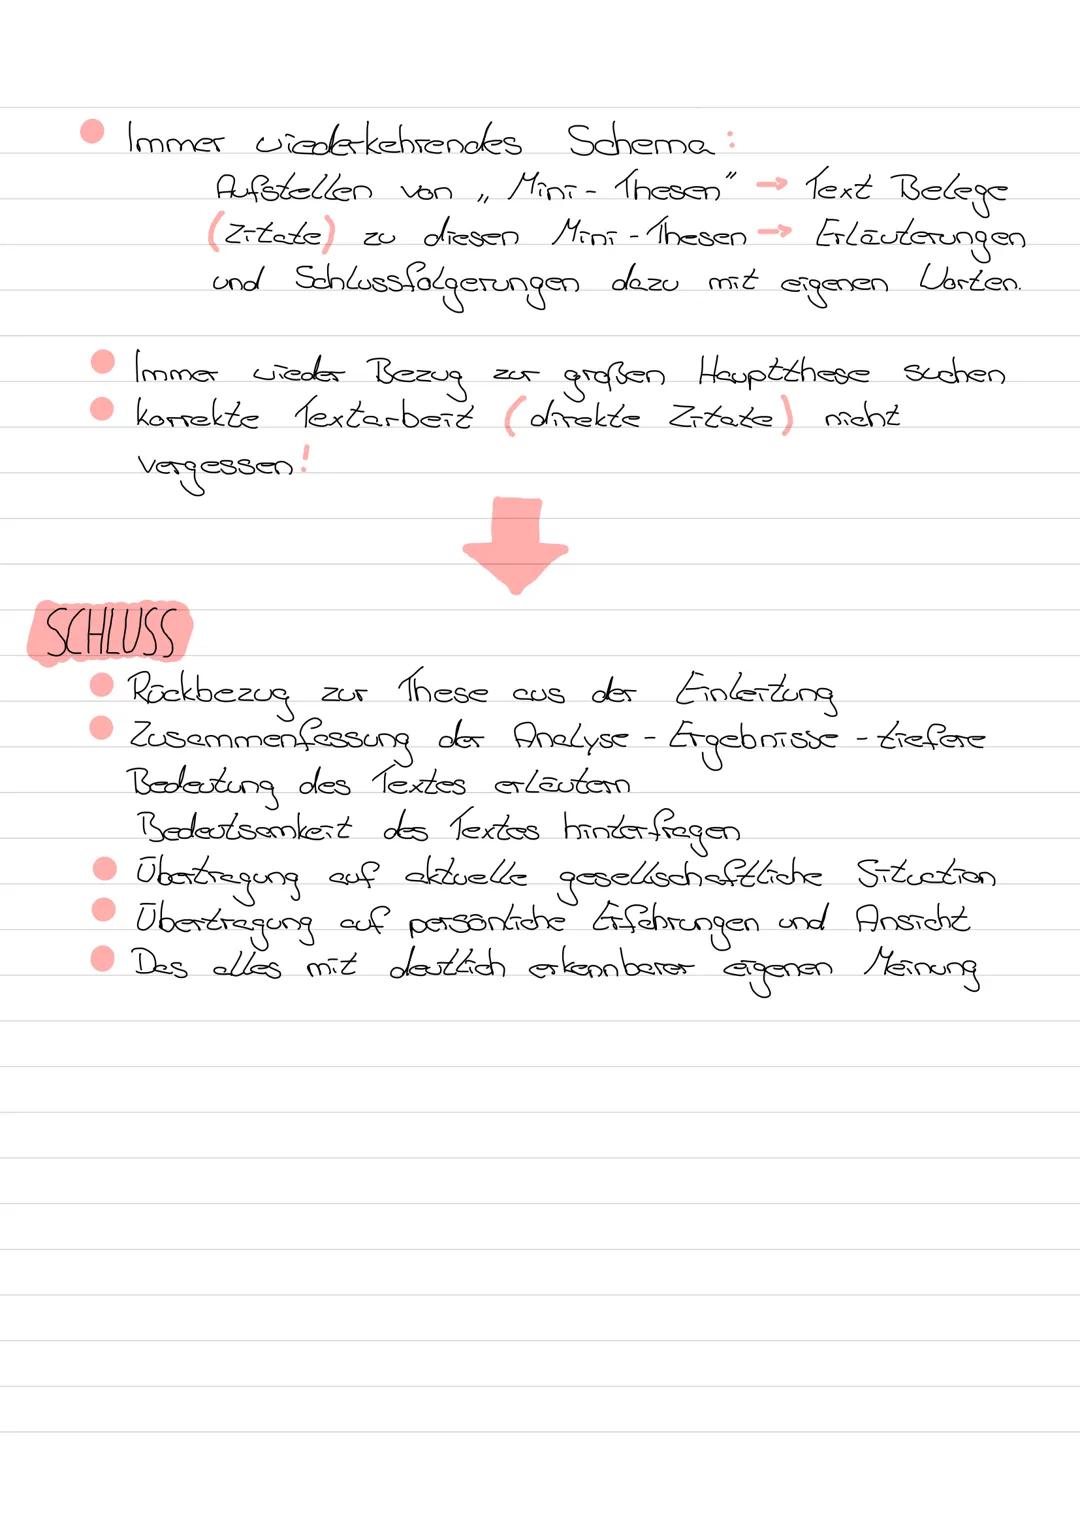 Immer wiederkehrendes Schema:
Aufstellen von „Mini-Thesen" → Text Belege
(Zitate) zu diesen Mini-Thesen → Erläuterungen
und Schlussfolgerungen dazu mit eigenen Worten.
Immer wieder Bezug zur großen Hauptthese suchen
korrekte Textarbeit (direkte Zitate) nicht
vergessen!
SCHLUSS
Rückbezug zur These aus der Einleitung
Zusammenfassung der Analyse - Ergebnisse - tiefere
Bedeutung des Textes erläutern
Bedeutsamkeit des Textes hinterfragen
Übertragung auf aktuelle gesellschaftliche Situation
Übertragung auf persönliche Erfahrungen und Ansicht
Das alles mit deutlich erkennbarer eigenen Meinung